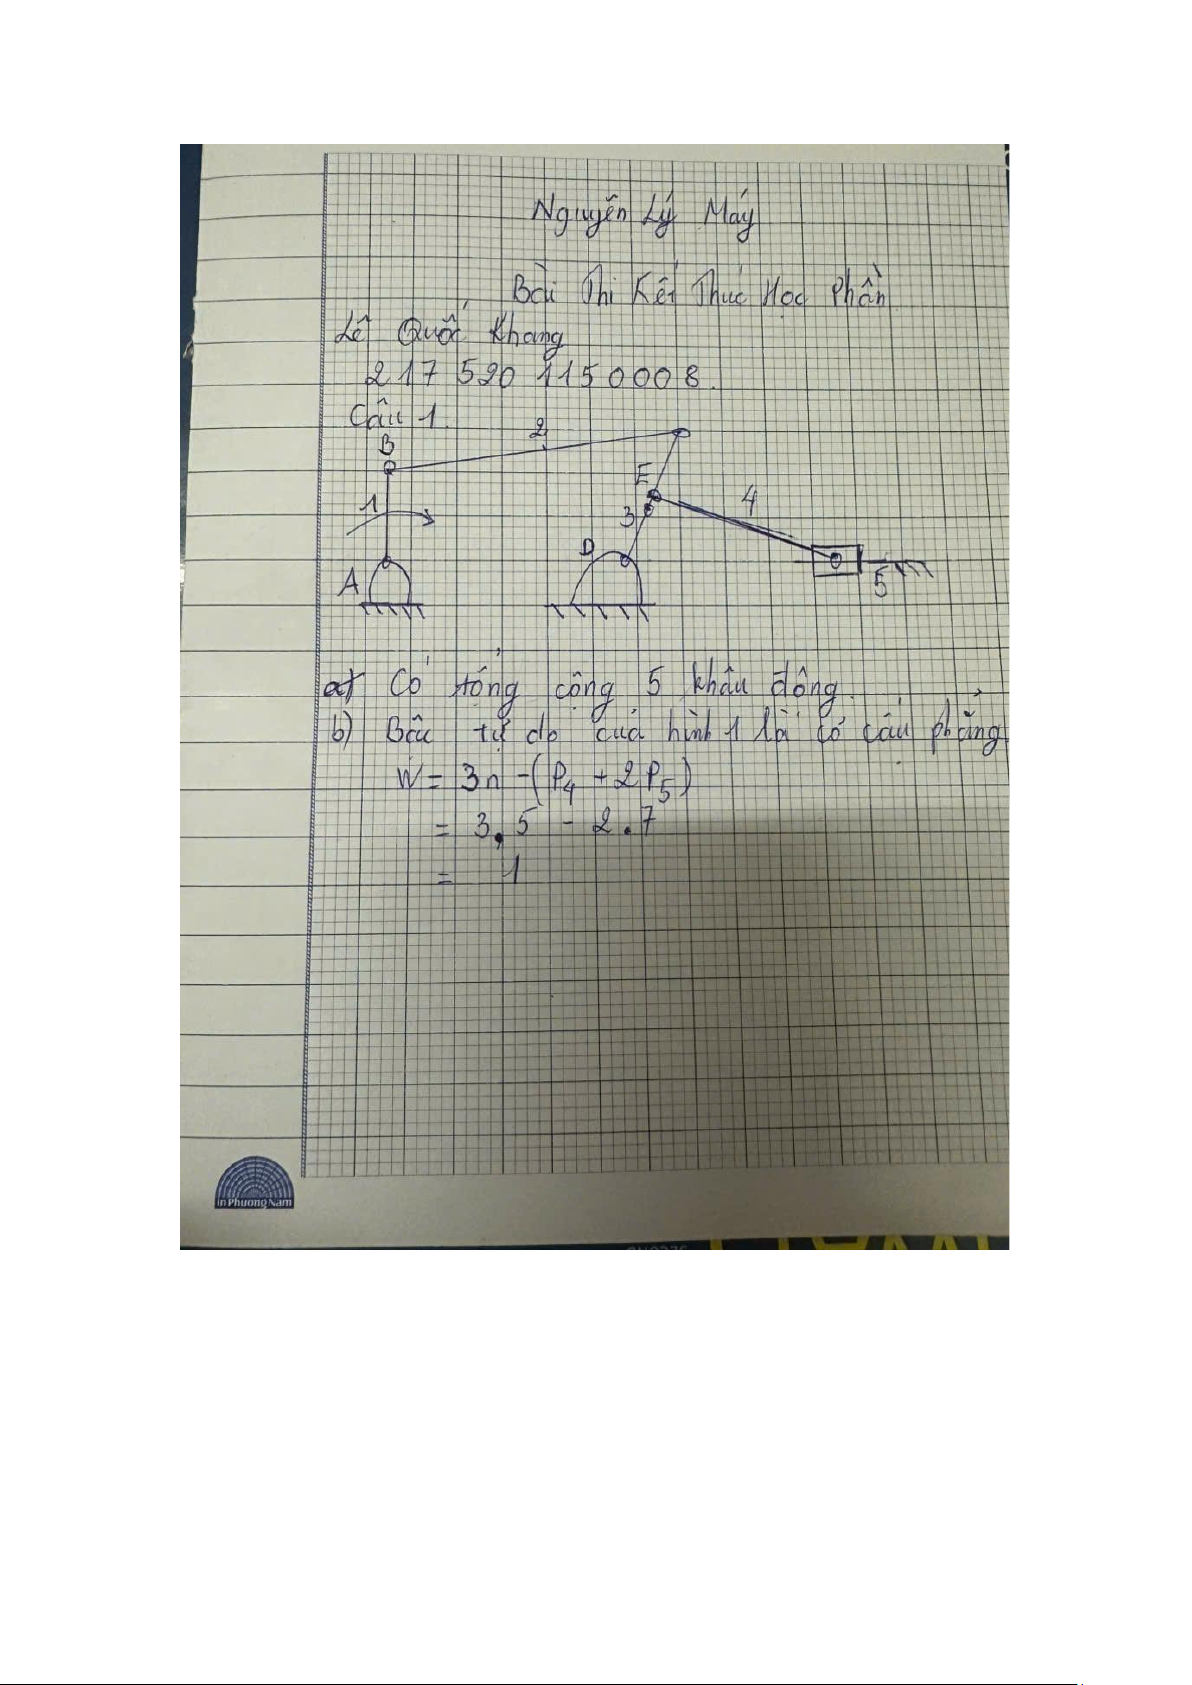 Nguyên Lý Máy
Bài Thi Kết Thúc Học Phần
Lê Quốc Khang
217 520 1150008.
Câu 1.
B
2
E
4
1
3
D
A
5
a) Có tổng cộng 5 khâu động.
b) Bậc tự do của hình 1 là cơ cấu phẳng
W = 3n - (P4 + 2P5)
= 3.5 - 2.7
= 1
in Phuong Nam